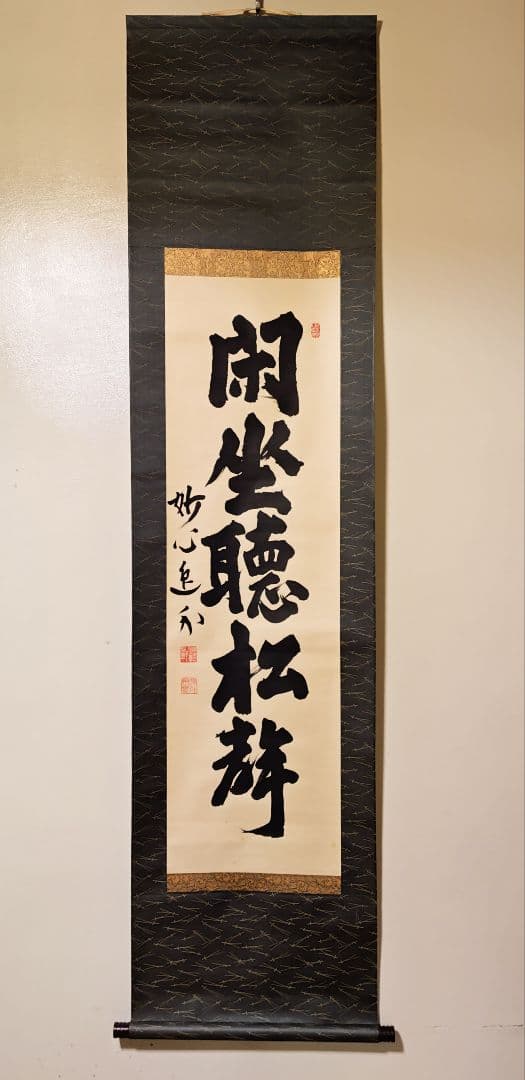 閑坐聽松聲
妙心